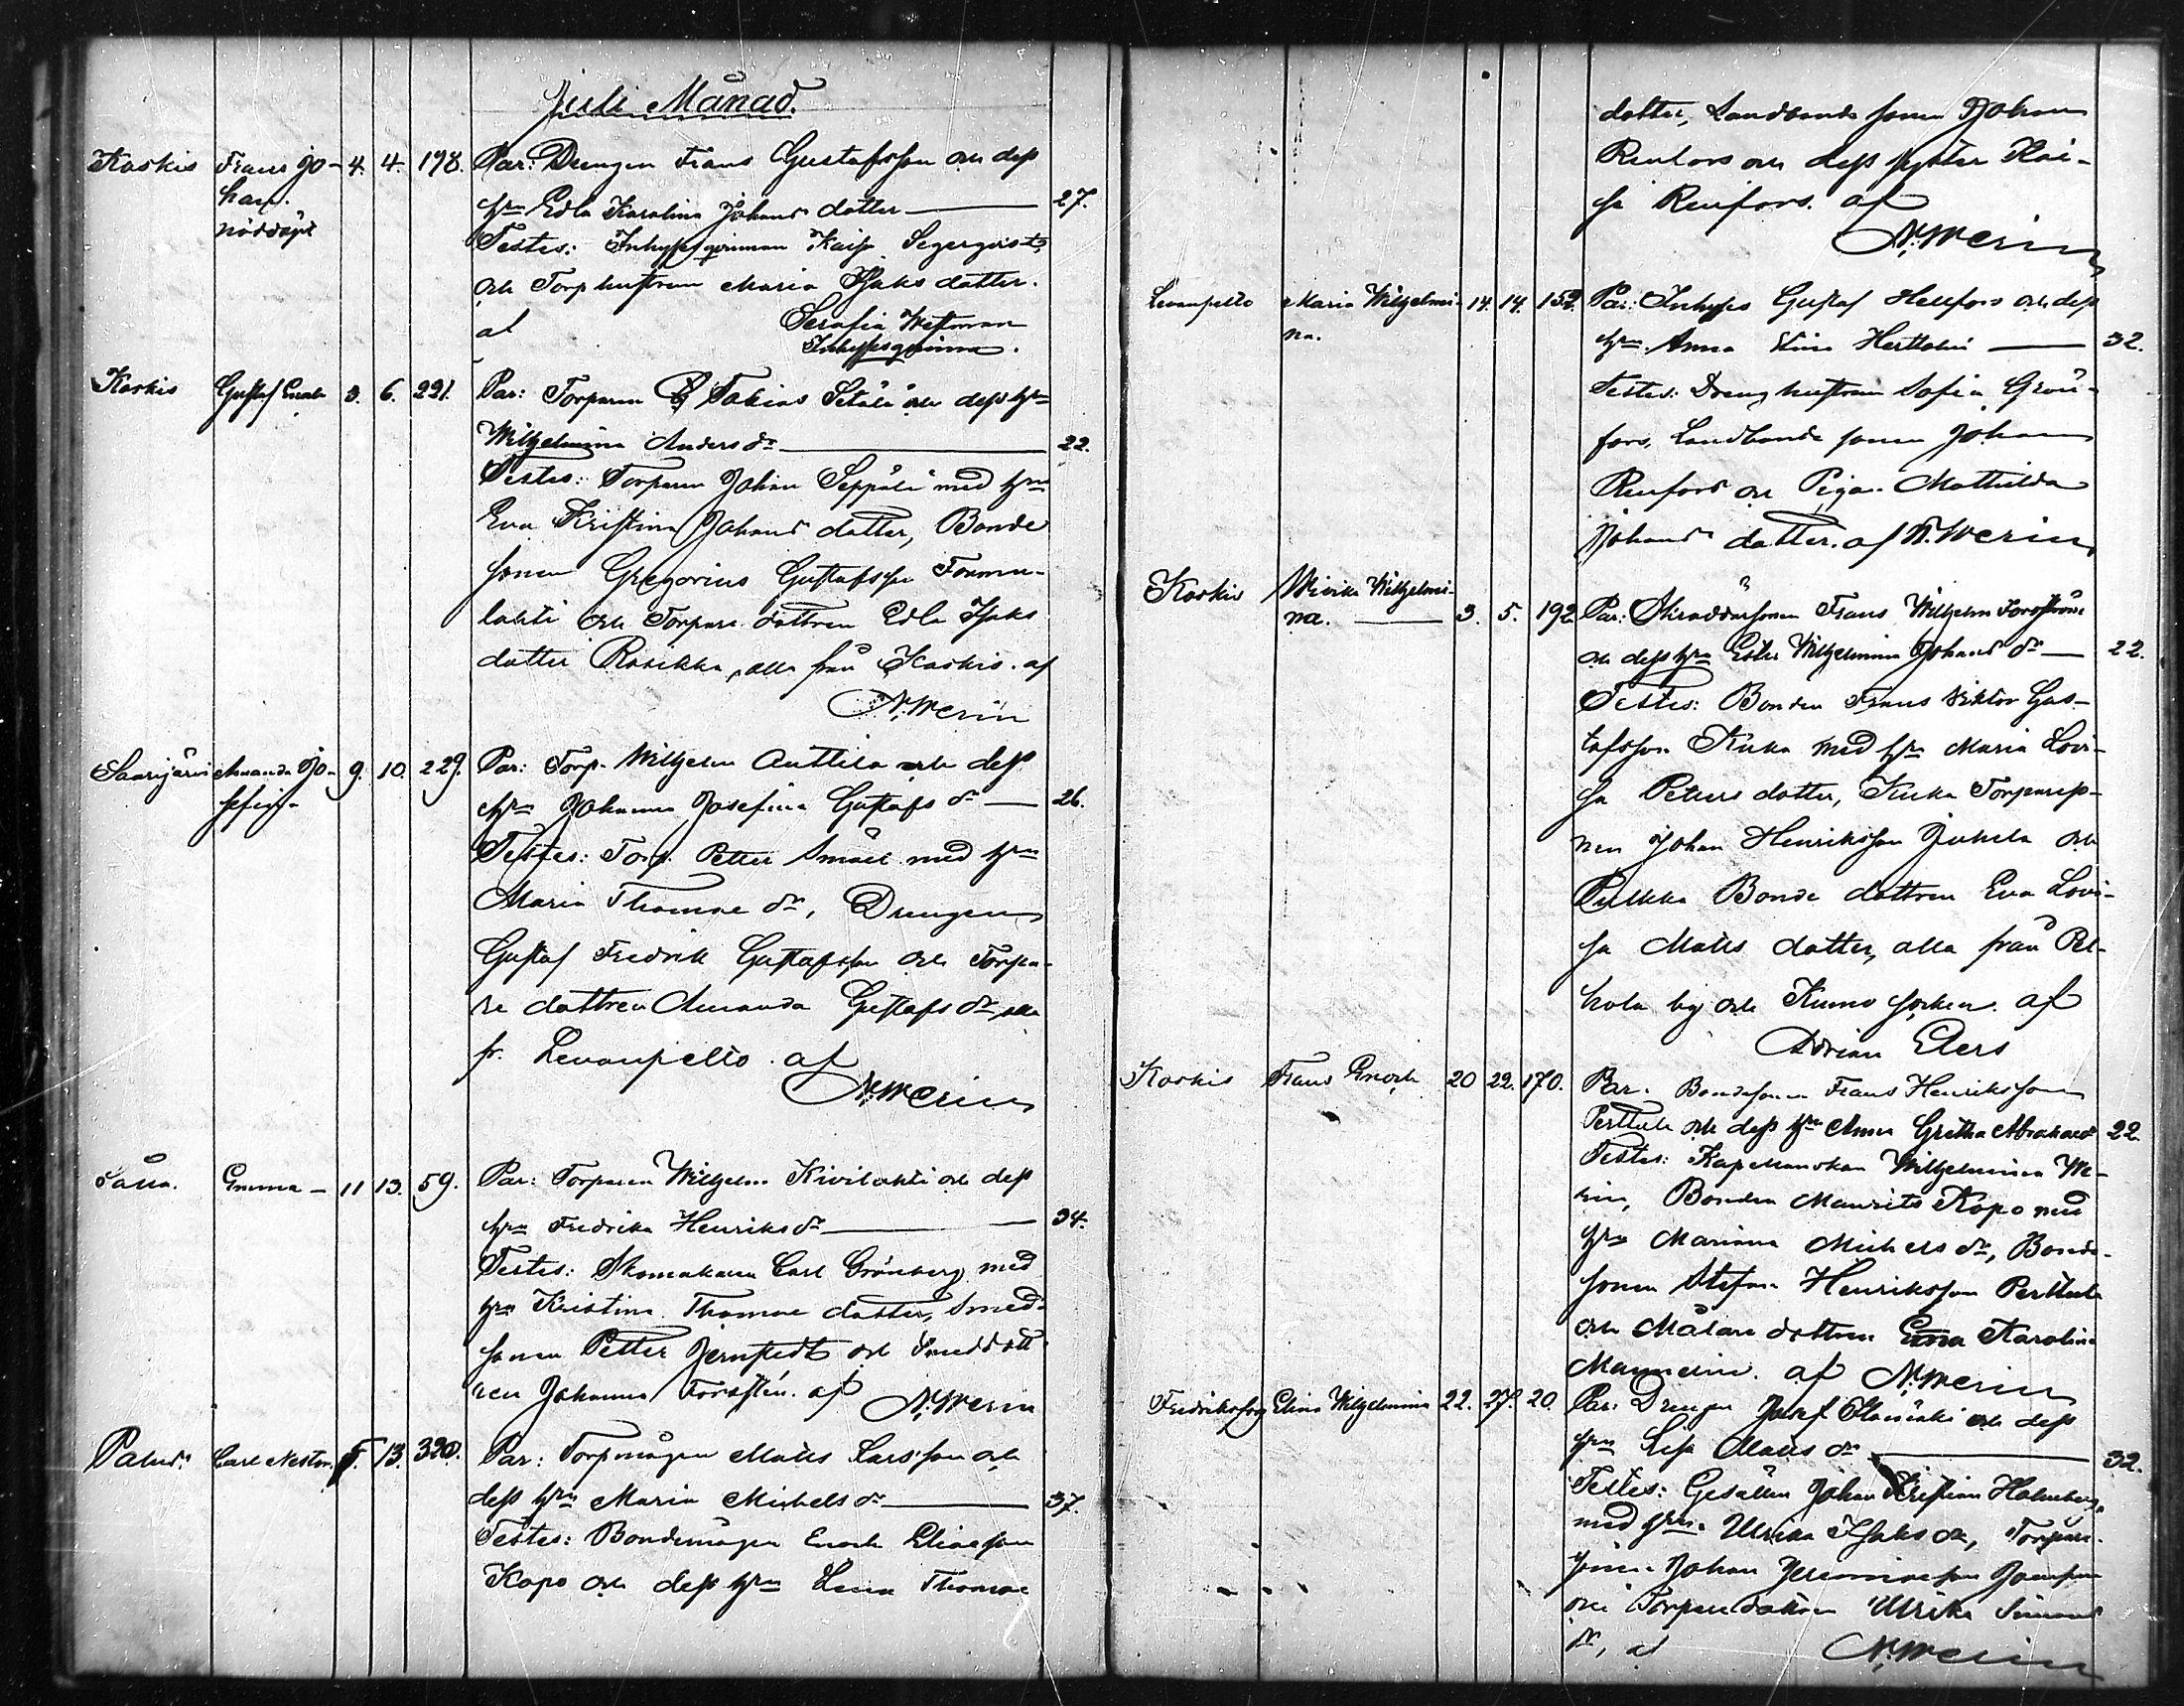 Juli Månad.
Koskis Frans Jo- 4. 4. 198. Par: Drengen Frans Gustafsson och dess
han. hru Edla Karolina Johans dotter — 27.
nöddöpt Testes: Inhysesqvinnan Kaisa Segerqvist
och Torp hustrun Maria Isaks dotter.
af Serafia Westman
Inhysesqvinna.
Koskis Gustaf Enok 3. 6. 221. Par: Torparen Tobias Setälä och dess hru
Wilhelmina Anders dr — 22.
Testes: Torparen Johan Seppälä med hru
Eva Kristina Johans dotter, Bonde
sonen Gregorius Gustafsson
lahti och Torpare dottren Edla Isaks
dotter Rasikka, alla från Koskis. af
N. Merin
Saarijärvi Amanda Jo- 9. 10. 229. Par: Torp. Wilhelm Anttila och dess
sefina hru Johanna Josefina Gustafs dr — 26.
Testes: Torp. Petter Småll med hru
Maria Thomae dr, Drengen
Gustaf Fredrik Gustafsson och Torpa-
re dottren Amanda Gustafs dr, alla
fr. Levanpelto. af
N. Merin
Emma — 11 13. 59. Par: Torparen Wilhelm Kivilahti och dess
hru Fredrika Henriks dr — 34.
Testes: Skomakaren Carl Grönberg med
hru Kristina Thomae dotter, Smed-
sonen Petter Jernstedt och Smeddott-
ren Johanna Forstén. af N. Merin
Palus. Carl Nestor. 13. 320. Par: Torpmågen Matts Larsson och
dess hru Maria Michels dr — 37.
Testes: Bondemågen Enok Eliasson
Kopo och dess hru Lena Thomae
dotter, Landbonde sonen Johan
Renfors och dess syster Kai-
sa Renfors. af
N. Merin
Levanpelto Maria Wilhelmi- 14. 14. 152. Par: Inhyses Gustaf Hellfors och dess
na. hru Anna Stina — 32.
Testes: Dreng hustrun Sofia Grön-
fors, Landbonde sonen Johan
Renfors och Pigan Mathilda
Johans dotter. af N. Merin
Koskis Wivika Wilhelmi-
na. — 3. 5. 192 Par: Skräddarsonen Frans Wilhelm
och dess hru Ester Wilhelmina Johans dr — 22.
Testes: Bonden Frans Viktor Gus-
tafsson Kuka med hru Maria Lovi-
sa Petters dotter, Kuka Torpareso-
nen Johan Henriksson Jukela och
Pulkka Bonde dottren Eva Lovi-
sa Matts dotter, alla från Pel-
hola by och Kumo socken. af
Adrian Elers
Koskis Frans Enok 20 22. 170. Par. Bondesonen Frans Henriksson
Perttula och dess hru Anna Gretha Abrahams 22.
Testes: Kapellanskan Wilhelmina Me-
rin, Bonden Maurits Kopo med
hru Mariana Michels dr, Bonde-
sonen Stefan Henriksson Perttula
och Målare dottren Karolina
Mannelin. af N. Merin
Fredriksfors Elina Wilhelmina 22. 27. 20. Par: Drengen Josef och dess
hru Lisa Matts dr — 32.
Testes: Gesällen Johan Kristian Holmberg,
med hru Ulrika Isaks dr, Torpare-
sonen Johan Jeremiasson
och Torparedottren Ulrika Simons
dr, af N. Merin